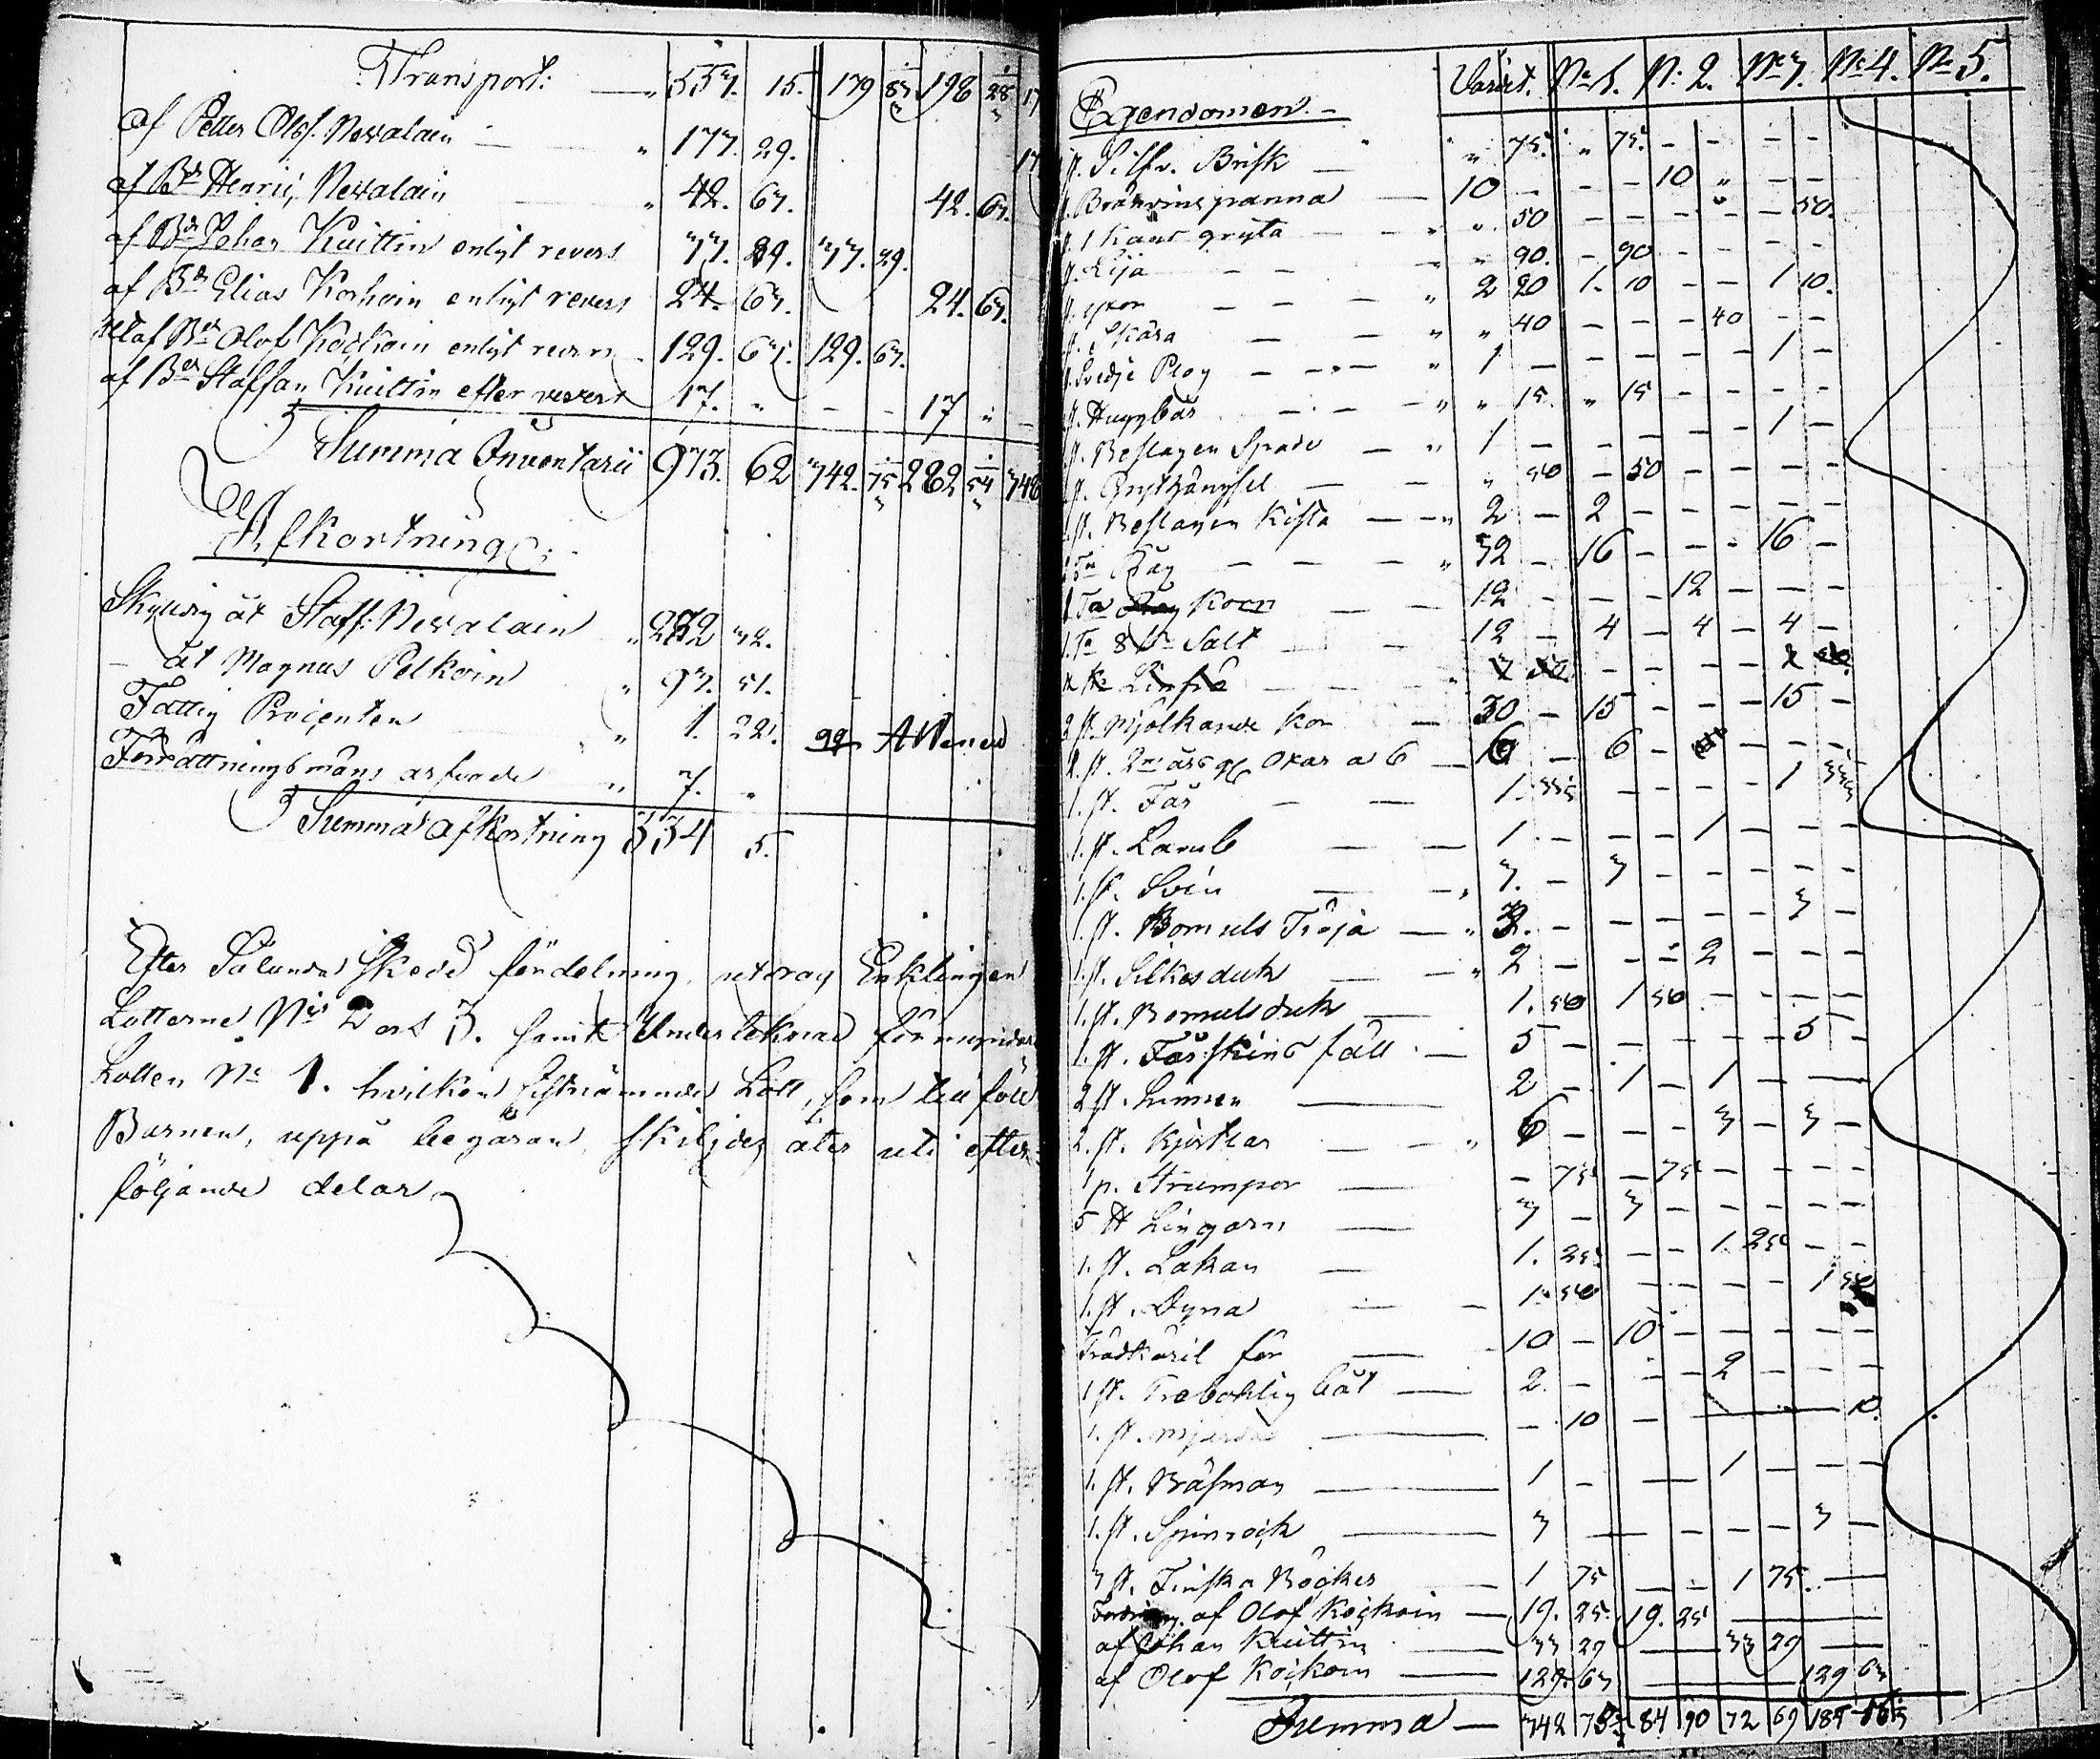 Transport: — „ 557. 15. 179 83 198 28 17
af Petter Olofs. Nevalain — „ 177. 29. 17
af Bdn Henric Nevalain „ 42. 67. 42. 67.
af Bdn Johan Kuittin enligt revers 33. 29. 33. 29.
af Bdn Elias Korhoin enligt revers 24. 67. 24. 67.
af Bdn Olof Kockoin enligt revers 129. 67. 129. 67.
af Bdn Staffan Kuittin efter revers 17. „ – – 17 „ –
Summa Inventarii 973. 62 342. 75 282 54 348
Afkortning:
Skyldig åt Staff: Nevalain „ 232 32.
– åt Magnus Pelkoin „ 93. 51.
Fattig Procenten „ 1. 22.
Förrättningsmäns arfvode „ 7. „
Summa afkortning 334 5.
Efter Sålunda skedd fördelning, utdrog Enklingen
Lotterne No 2 och 3. samt Underteknad förmyndare
Lotten No 1. hvilken sistnämnde Lott, som tillföll
Barnen, uppå begäran, skiljdes åter uti efter-
följande delar
Egendomen. – Värdet. No 1. No 2. No 3. No 4. No 5.
1 st. Silfv. Brisk — „ 75. „ 75. – – – –
1 Brännvins panna — 10 – – – 10 „ – –
1 st. 1 Kans gryta – – „ „ 50 – – – – – 50.
1 st. Lija – – „ „ 90. – 90 – – – –
st. yxor – – – „ 2 20 1. 10 – – 1 10.
st. Skära — — „ „ 40 – – – 40 – –
1 Svedje Plog — – – „ 1 – – – – – 1 –
1 st. Huggbår – – – „ „ 15. „ 15 – – – –
1 st. Beslagen Spade – „ 1 – – – – – 1 –
1 st. Grythängsel — — „ 50 – 50 – – – –
1 st. Beslagen Kista – – „ 2 – 2 – – – – –
Tn Råg – – – „ 32 – 16 – – – 16 –
1 Tn Korn — — 12 – – – 12 – – –
1 Tn Salt 12 – 4 – 4 – 4 –
2 st. Mjölkande Kor — 30 – 15 – – – 15 –
st. 2ne års Oxar a 6 — 6 – 6 – – – –
1. st. Får – – 1. 33⅓ – – – – 1 33⅓
1. st. Lamb — — 1 – – – 1 – – –
1. st. Svin — – „ 3. – 3 – – – – –
1. st. Bomuls Tröja — „ 3. – – – – – 3 –
1. st. Silkesduk — – „ 2 – – – 2 – – –
1. st. Bomulsduk — 1. 50 1 50 – – – –
1. st. Fårskins fäll – — 5 – – – – – 5 –
2 st. Linnen — 2 – 1 – 1 – —
2. st. Kjortlar — – „ 6 – – – 3 – 3 –
1 p. Strumpor — – 75 – 75 – – – –
5 ℔ Lingarn — 3 – 3 – – – – –
1. st. Lakan — 1. 25. – – 1. 25 – –
1. st. Dyna — – 1. 50 – – – – 1 50
Trädkäril för — 10 – 10 – – – – –
1 st. Trebordig båt — 2. – – – 2 – – –
1. st. Mjerde — – 10 – — 10.
1. st. Bräsman — 1 – — 1 – – –
1. st. Spinrock — 3 — – – – 3 –
3 st. Finska Böcker — 1 75 – – 1 75. —
Fordring af Olof Kockoin — 19. 25. 19. 25 —
af Johan Kuittin — 33 29 — 33 29 —
af Olof Kockoin — 129. 67 — 129 67
Summa — 342 75⅓ 84 90 72 69 185 16⅓